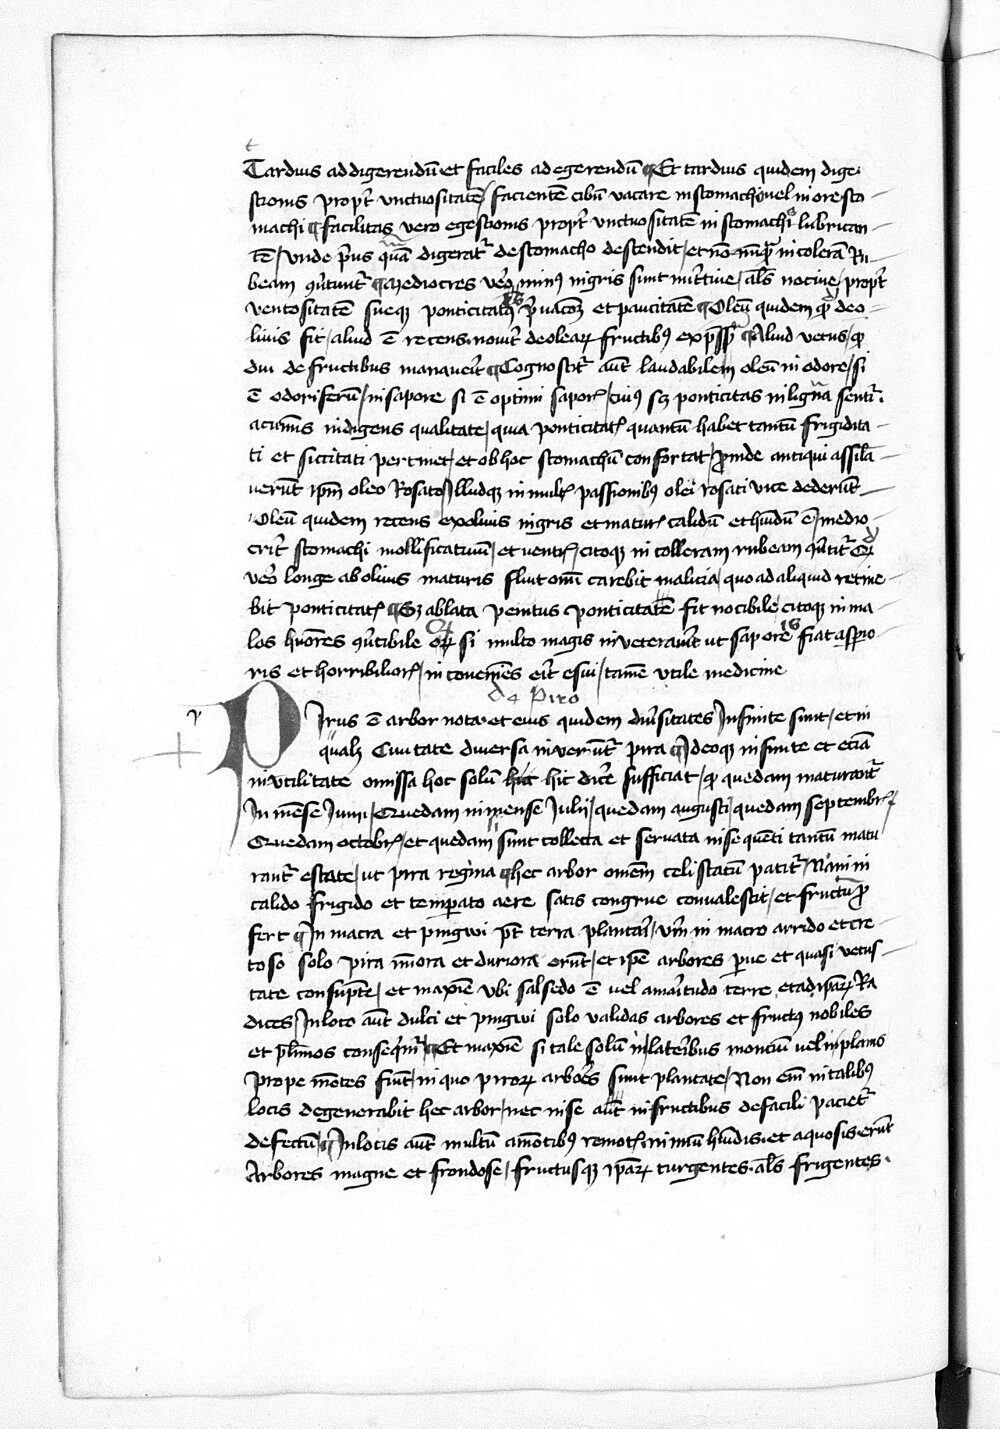 t
Tardius ad digerendū et faciles ad egerendū ¶ Et tardius quidem dige
stionis propt̄ vnctuositatē / facientē cibū vacare in stomacho uel in ore sto
machi ¶ facilitas vero egestionis propt̄ vnctuositatē in stomachi lubrican
tē / vnde prius quā digerat̄ de stomacho descendit / et nō nūq̄ in colerā Ru
beam ꝯūtunt̄ ¶ Mediocres v̄o minus nigris sunt nut̄tiue / als̄ nociue / propt̄
ventositatē sueqꝫ ponticitatis et paucitatē ¶ Oleū quidem de o
liuis fit / aliud ē recens nouit̄ de olearꝝ fructibꝫ exp̄ssū ¶ Aliud vetus / qͦ
diu de fructibus manauerit ¶ Cognoscit̄ aūt laudabilem oleū in odore / si
ē odoriferū / in sapore si ē optimi sapor̄ / cuiꝰ sꝫ ponticitas in lignā sentit̄
acuminis indigens qualitate / quia ponticitat̄ quantū habet tantū frigidita
ti et siccitati pertinet / et ob hoc stomachū confortat / proinde antiqui assila
uerūt ip̄m oleo Rosato / Illudqꝫ in mult̄ passionibꝫ olei rosati vice dederūt
Oleū quidem recens ex oliuis nigris et matur̄ calidū et hūidū ē / medio
crit̄ stomachi mollificatiuū / et ventr̄ / citoqꝫ in colleram rubeam ꝯūtit̄
v̄o longe ab oliuis maturis fluit omī carebit malicia / quo ad aliquid retine
bit ponticitat̄ ¶ Sꝫ ablata penitus ponticitatē fit nocibile / citoqꝫ in ma
los hūores ꝯūtibile si multo magis inueterauit̄ ut sapore fiat asperio
ris et horribilior̄ / in conueniēs erit̄ esui / tamē vtile medicine
de Piro
PIrus ē arbor nota et eius quidem diūsitates Infinite sunt / et in
qualꝫ Ciuitate diuersa inuen̄unt̄ pira ¶ Ideoqꝫ infinite et eciā
in vtilitate omissa hoc solū hic dicere sufficiat / qͦ quedam maturant̄
In mēse Iunij / Quedam in mense Iulij / quedam augusti / quedam septembr̄ /
Quedam octobr̄ / et quedam sunt collecta et seruata in se quēti tantū matu
rant̄ estate / ut pira regina ¶ hec arbor omēm celi statū patit̄ / Nam in
calido frigido et temperato aere satis congrue conualescit / et fructū pro
fert ¶ In macra et pingwi pt̄ terra plantari / vn̄ in macro arrido et cre
toso solo pira miora et duriora erūt / et ip̄e arbores parue et quasi vetus
tate consūpte / et maxīe vbi salsedo ē uel amaritudo terre et ad ip̄arꝝ Ra
dices / In loto aūt dulci et pingwi solo validas arbores et fructꝰ nobiles
et plimos consequimr̄ ¶ Et maxīe si tale solū in lateribus monciū uel in planis
prope mōtes fiūt / in quo pirorꝝ arbores sunt plantate / Non em̄ in talibꝫ
locis degenerabit hec arbor / nec in se aūt in fructibus de facili paciet̄
defectū ¶ In locis aūt multū a mōtibꝫ remot̄ nimiū hūidis et aquosis erūt
Arbores magne et frondose / fructusqꝫ ip̄arꝝ turgentes als̄ frigentes.